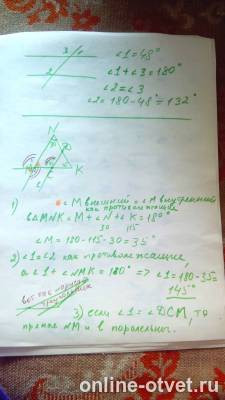 3 1
2
∠1=48°
∠1+∠3=180°
∠2=∠3
∠2=180-48°=132°
N
M
K
1) ∠M внешний = ∠M внутренний
как противолежащие
в △MNK = M+∠N+∠K=180°
30 115
∠M = 180-115-30=35°
2) ∠1=∠2 как противолежащие,
а ∠1+∠NMK=180° => ∠1=180-35=
145°
3) если ∠1=∠DCM, то
прямые NM и b параллельны.
online-otvet.ru